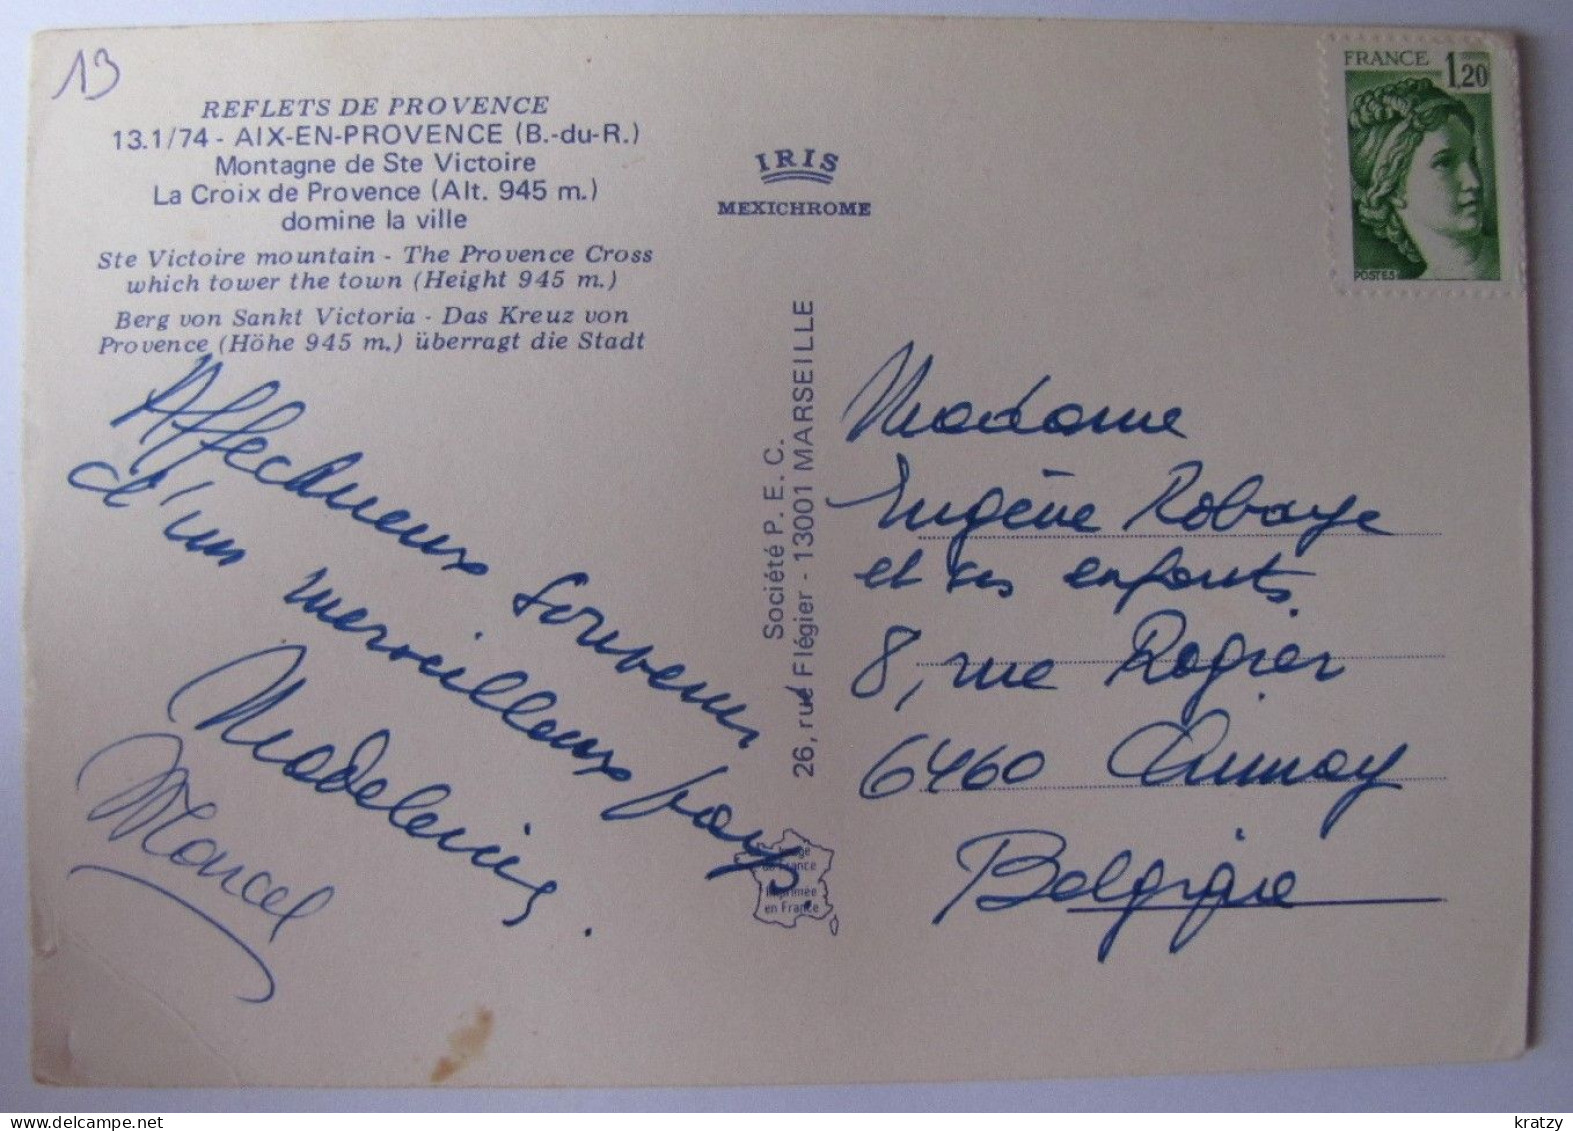 13
REFLETS DE PROVENCE
13.1/74 - AIX-EN-PROVENCE (B.-du-R.)
Montagne de Ste Victoire
La Croix de Provence (Alt. 945 m.)
domine la ville
Ste Victoire mountain - The Provence Cross
which tower the town (Height 945 m.)
Berg von Sankt Victoria - Das Kreuz von
Provence (Höhe 945 m.) überragt die Stadt
Affectueux souvenir
d'un merveilleux pays.
Madeleine.
Marcel
IRIS
MEXICHROME
Société P. E. C.
26, rue Flégier - 13001 MARSEILLE
Image
de France
Imprimée
en France
FRANCE 1,20
POSTES
Madame
Eugène Robaye
et ses enfants.
8, rue Rogier
6460 Chimay
Belgique
kratzy